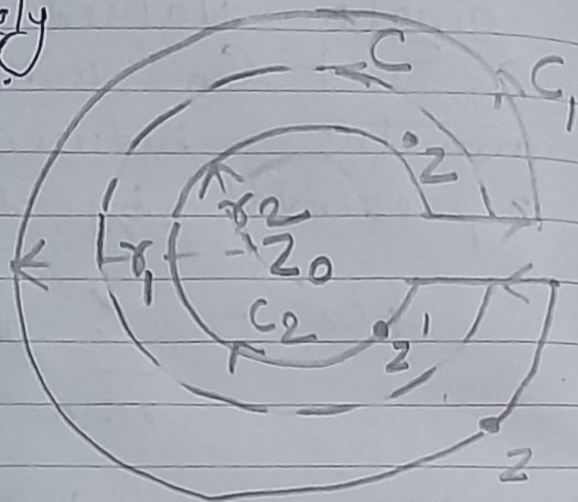 C
C₁
z
r₂
r₁
z₀
C₂
z'
z